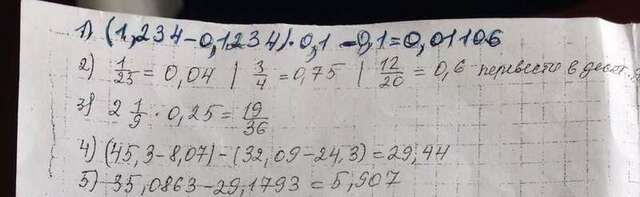 1) (1,234-0,1234)·0,1 -0,1=0,01106
2) 1/25 = 0,04 | 3/4 = 0,75 | 12/20 = 0,6 - перевести в десят.
3) 2 1/9 · 0,25 = 19/36
4) (45,3-8,07)-(32,09-24,3)=29,44
5) 35,0863-29,1793=5,907